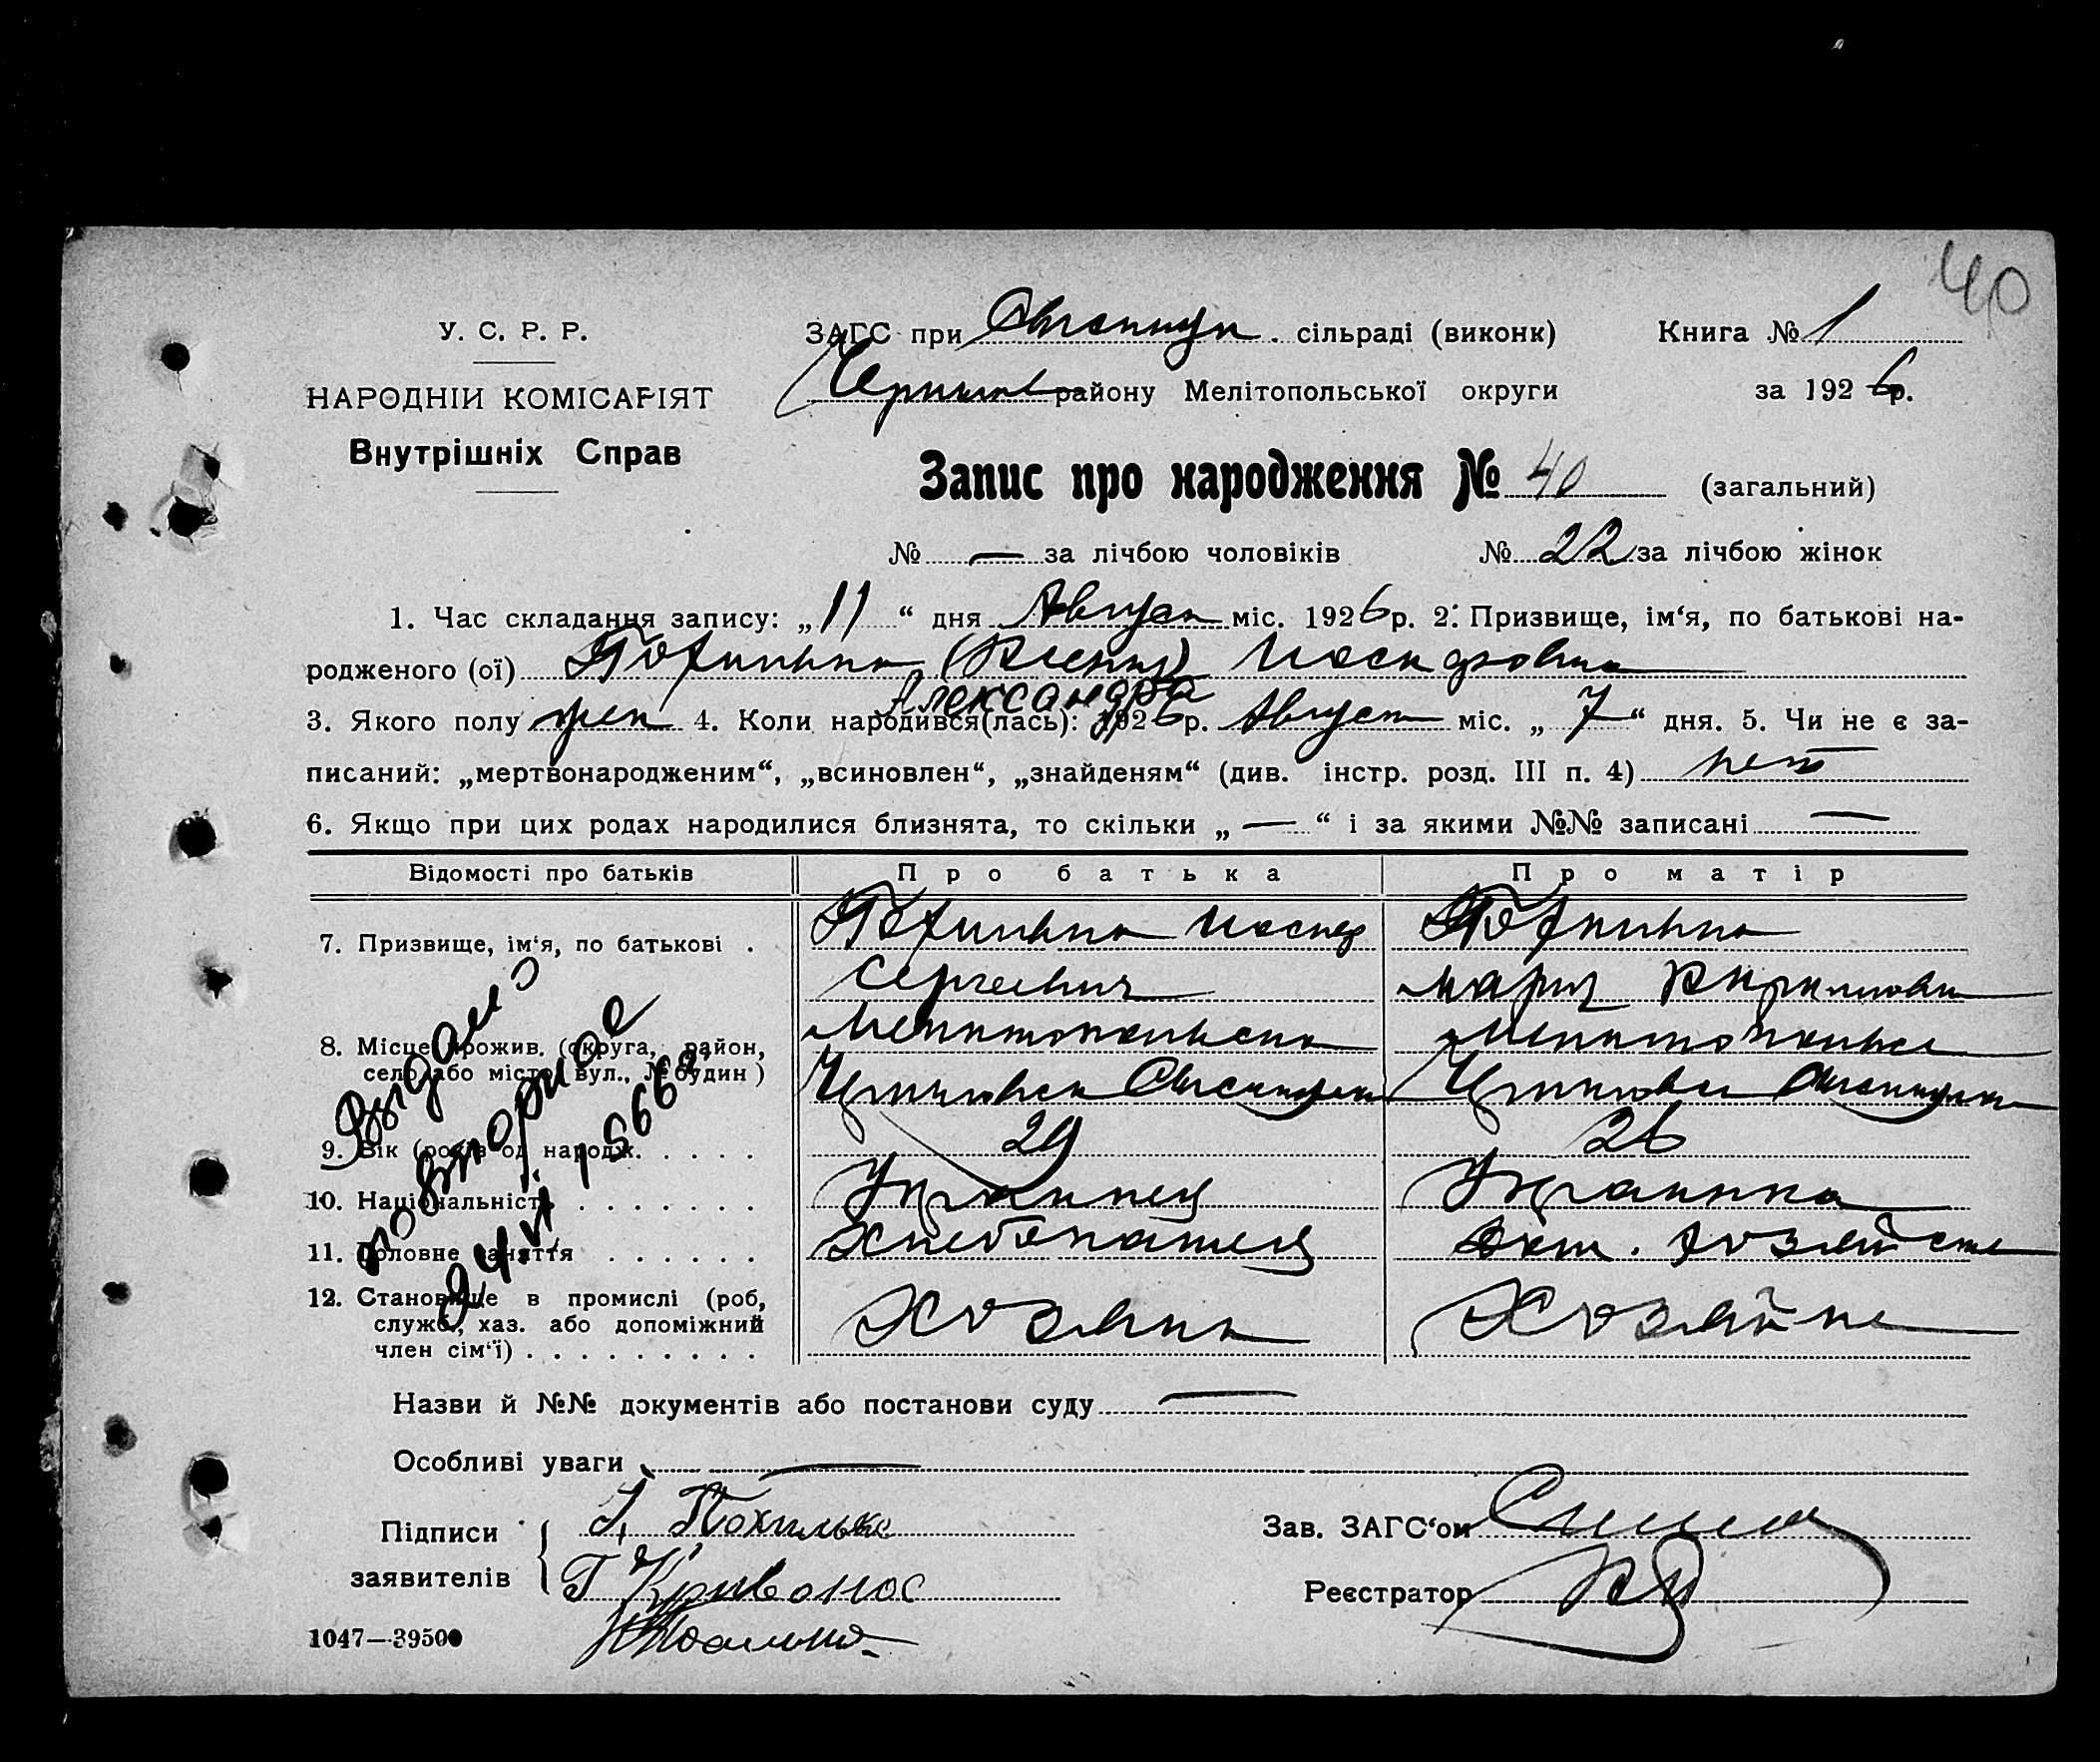 40
У. С. Р. Р.
НАРОДНІИ КОМІСАРІЯТ
Внутрішніх Справ
ЗАГС при сільраді (виконк)
району Мелітопольської округи
Книга № 1
за 1926 р.
Запис про народження № 40 (загальний)
№ — за лічбою чоловіків № 22 за лічбою жінок
1. Час складання запису: „11“ дня Август міс. 1926 р. 2. Призвище, ім‘я, по батькові на-
родженого (ої) Похилько Иосифовна
Александра
3. Якого полу жен 4. Коли народився(лась): 1926 р. Август міс. „7“ дня. 5. Чи не є за-
писаний: „мертвонародженим“, „всиновлен“, „знайденям“ (див. інстр. розд. III п. 4) нет
6. Якщо при цих родах народилися близнята, то скільки „—“ і за якими №№ записані —
Відомості про батьків Про батька Про матір
7. Призвище, ім‘я, по батькові . Похилько Иосиф Сергеевич
Похилько Мария Кириловна
8. Місце прожив. (округа, район,
село або місто, вул., № будин) Мелитопольска
Мелитопольск
9. Вік (років од народж. . . . . 29 26
10. Національність . . . . . . . Украинец Украинка
11. Головне заняття . . . . . . Хлебопашец Дом. хозяйств
12. Становище в промислі (роб,
служб, хаз. або допоміжний
член сім‘ї) . . . . . . . . . Хозяин Хозяйка
Выдано
повторное
24/VI 1966 г.
Назви й №№ документів або постанови суду —
Особливі уваги —
Підписи заявителів
І. Похилько
Г Кривонос
Зав. ЗАГС‘ом
Реєстратор
1047—39500